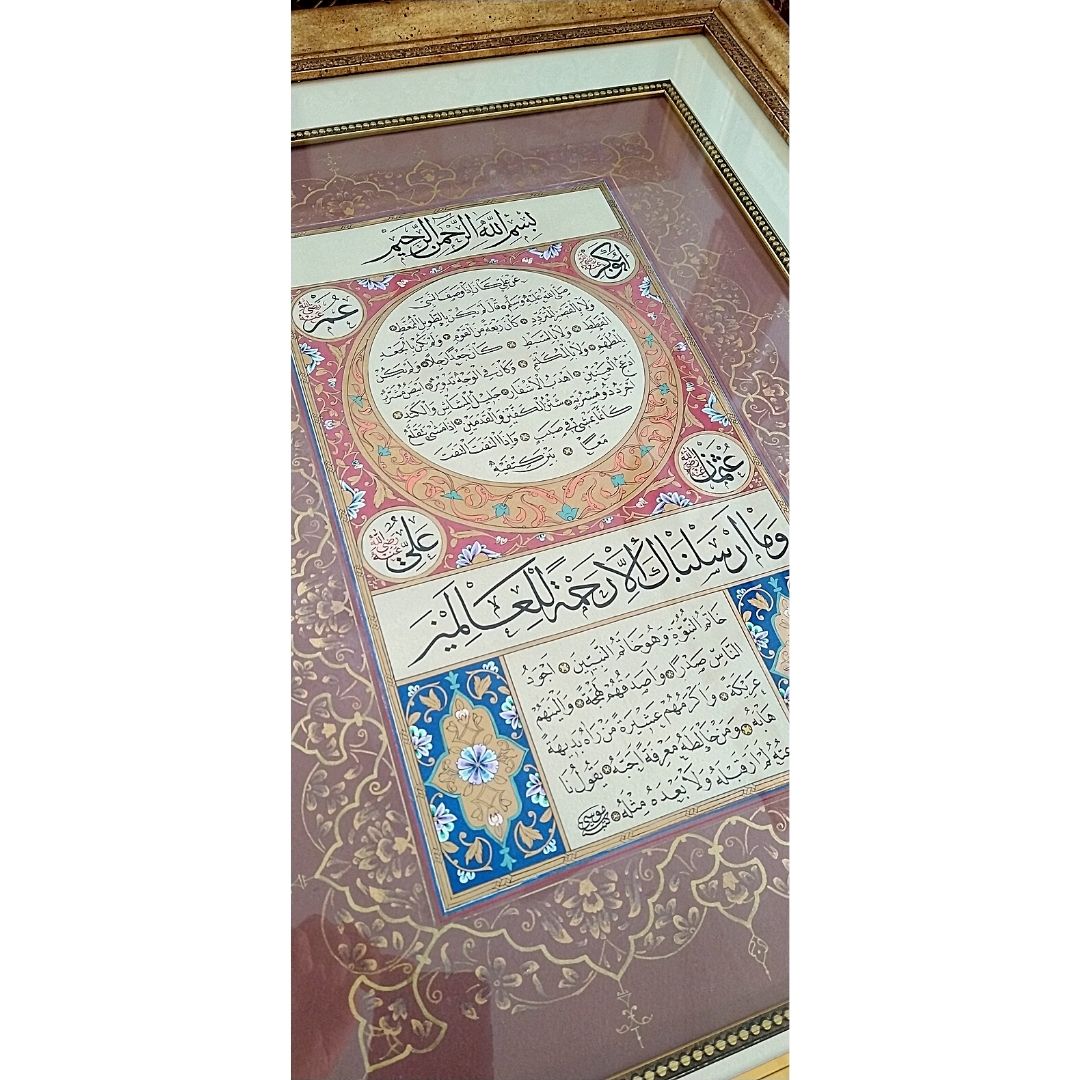 بِسْمِ اللهِ الرَّحْمٰنِ الرَّحِيْمِ
أبو بكر رضي الله عنه
عمر رضي الله عنه
عن علي كان اذا وصف النبي
صلى الله عليه وسلم قال لم يكن بالطويل الممغط
ولا بالقصير المتردد كان ربعة من القوم ولم يكن بالجعد
القطط ولا بالسبط كان جعدا رجلا ولم يكن
بالمطهم ولا بالمكلثم وكان في الوجه تدوير ابيض مشرب
ادعج العينين اهدب الاشفار جليل المشاش والكتد
اجرد ذو مسربة شثن الكفين والقدمين اذا مشى تقلع
كانما يمشي في صبب واذا التفت التفت
معا بين كتفيه
عثمان رضي الله عنه
علي رضي الله عنه
وما ارسلناك الا رحمة للعالمين
خاتم النبوة وهو خاتم النبيين اجود
الناس صدرا واصدقهم لهجة والينهم
عريكة واكرمهم عشيرة من راه بديهة
هابه ومن خالطه معرفة احبه يقول نا
عته لم ار قبله ولا بعده مثله